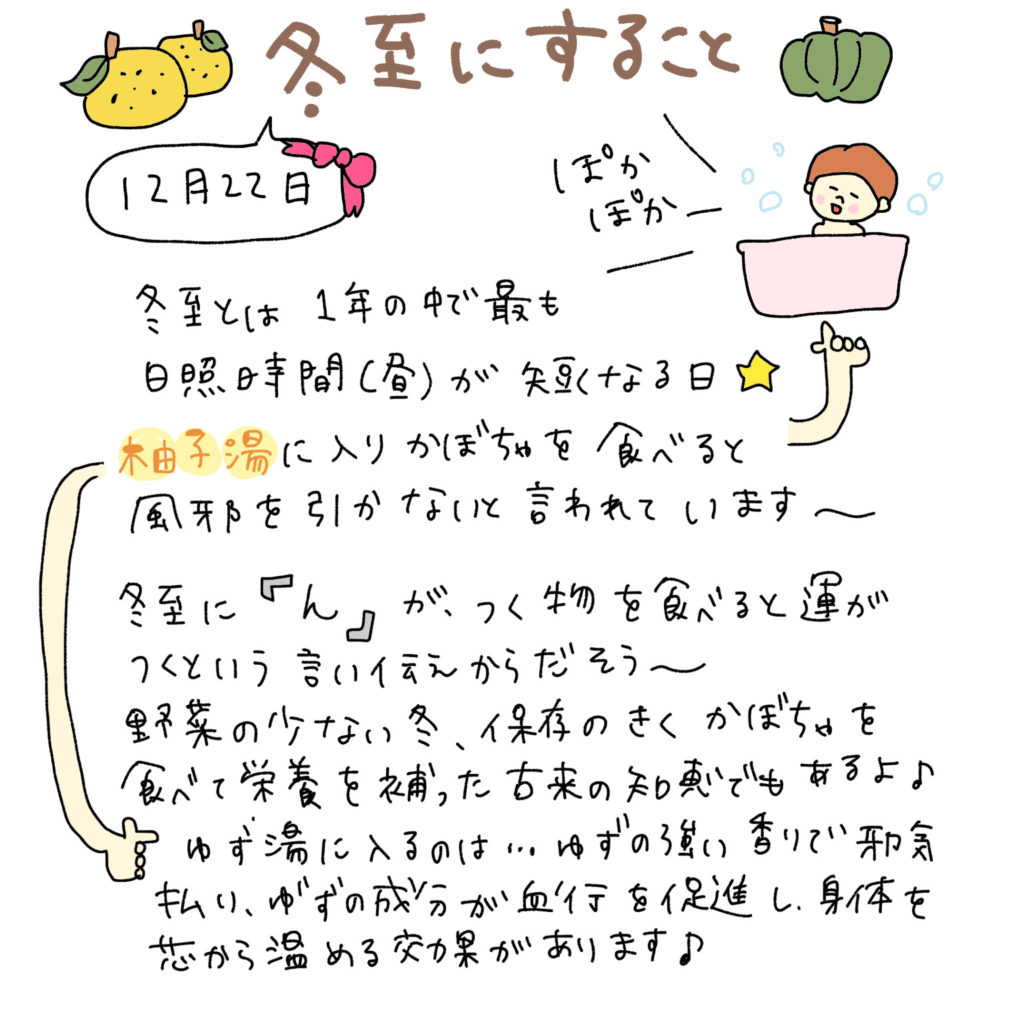 冬至にすること
12月22日
ぽか
ぽか
冬至とは 1年の中で最も
日照時間(昼)が 短くなる日
柚子湯に入り かぼちゃを 食べると
風邪を引かないと言われています〜
冬至に『ん』が、つく物を食べると運が
つくという言い伝えからだそう〜
野菜の少ない冬、保存のきく かぼちゃを
食べて栄養を補った古来の知恵でもあるよ♪
ゆず湯に入るのは…ゆずの強い香りで邪気
払い、ゆずの成分が血行を促進し、身体を
芯から温める効果があります♪